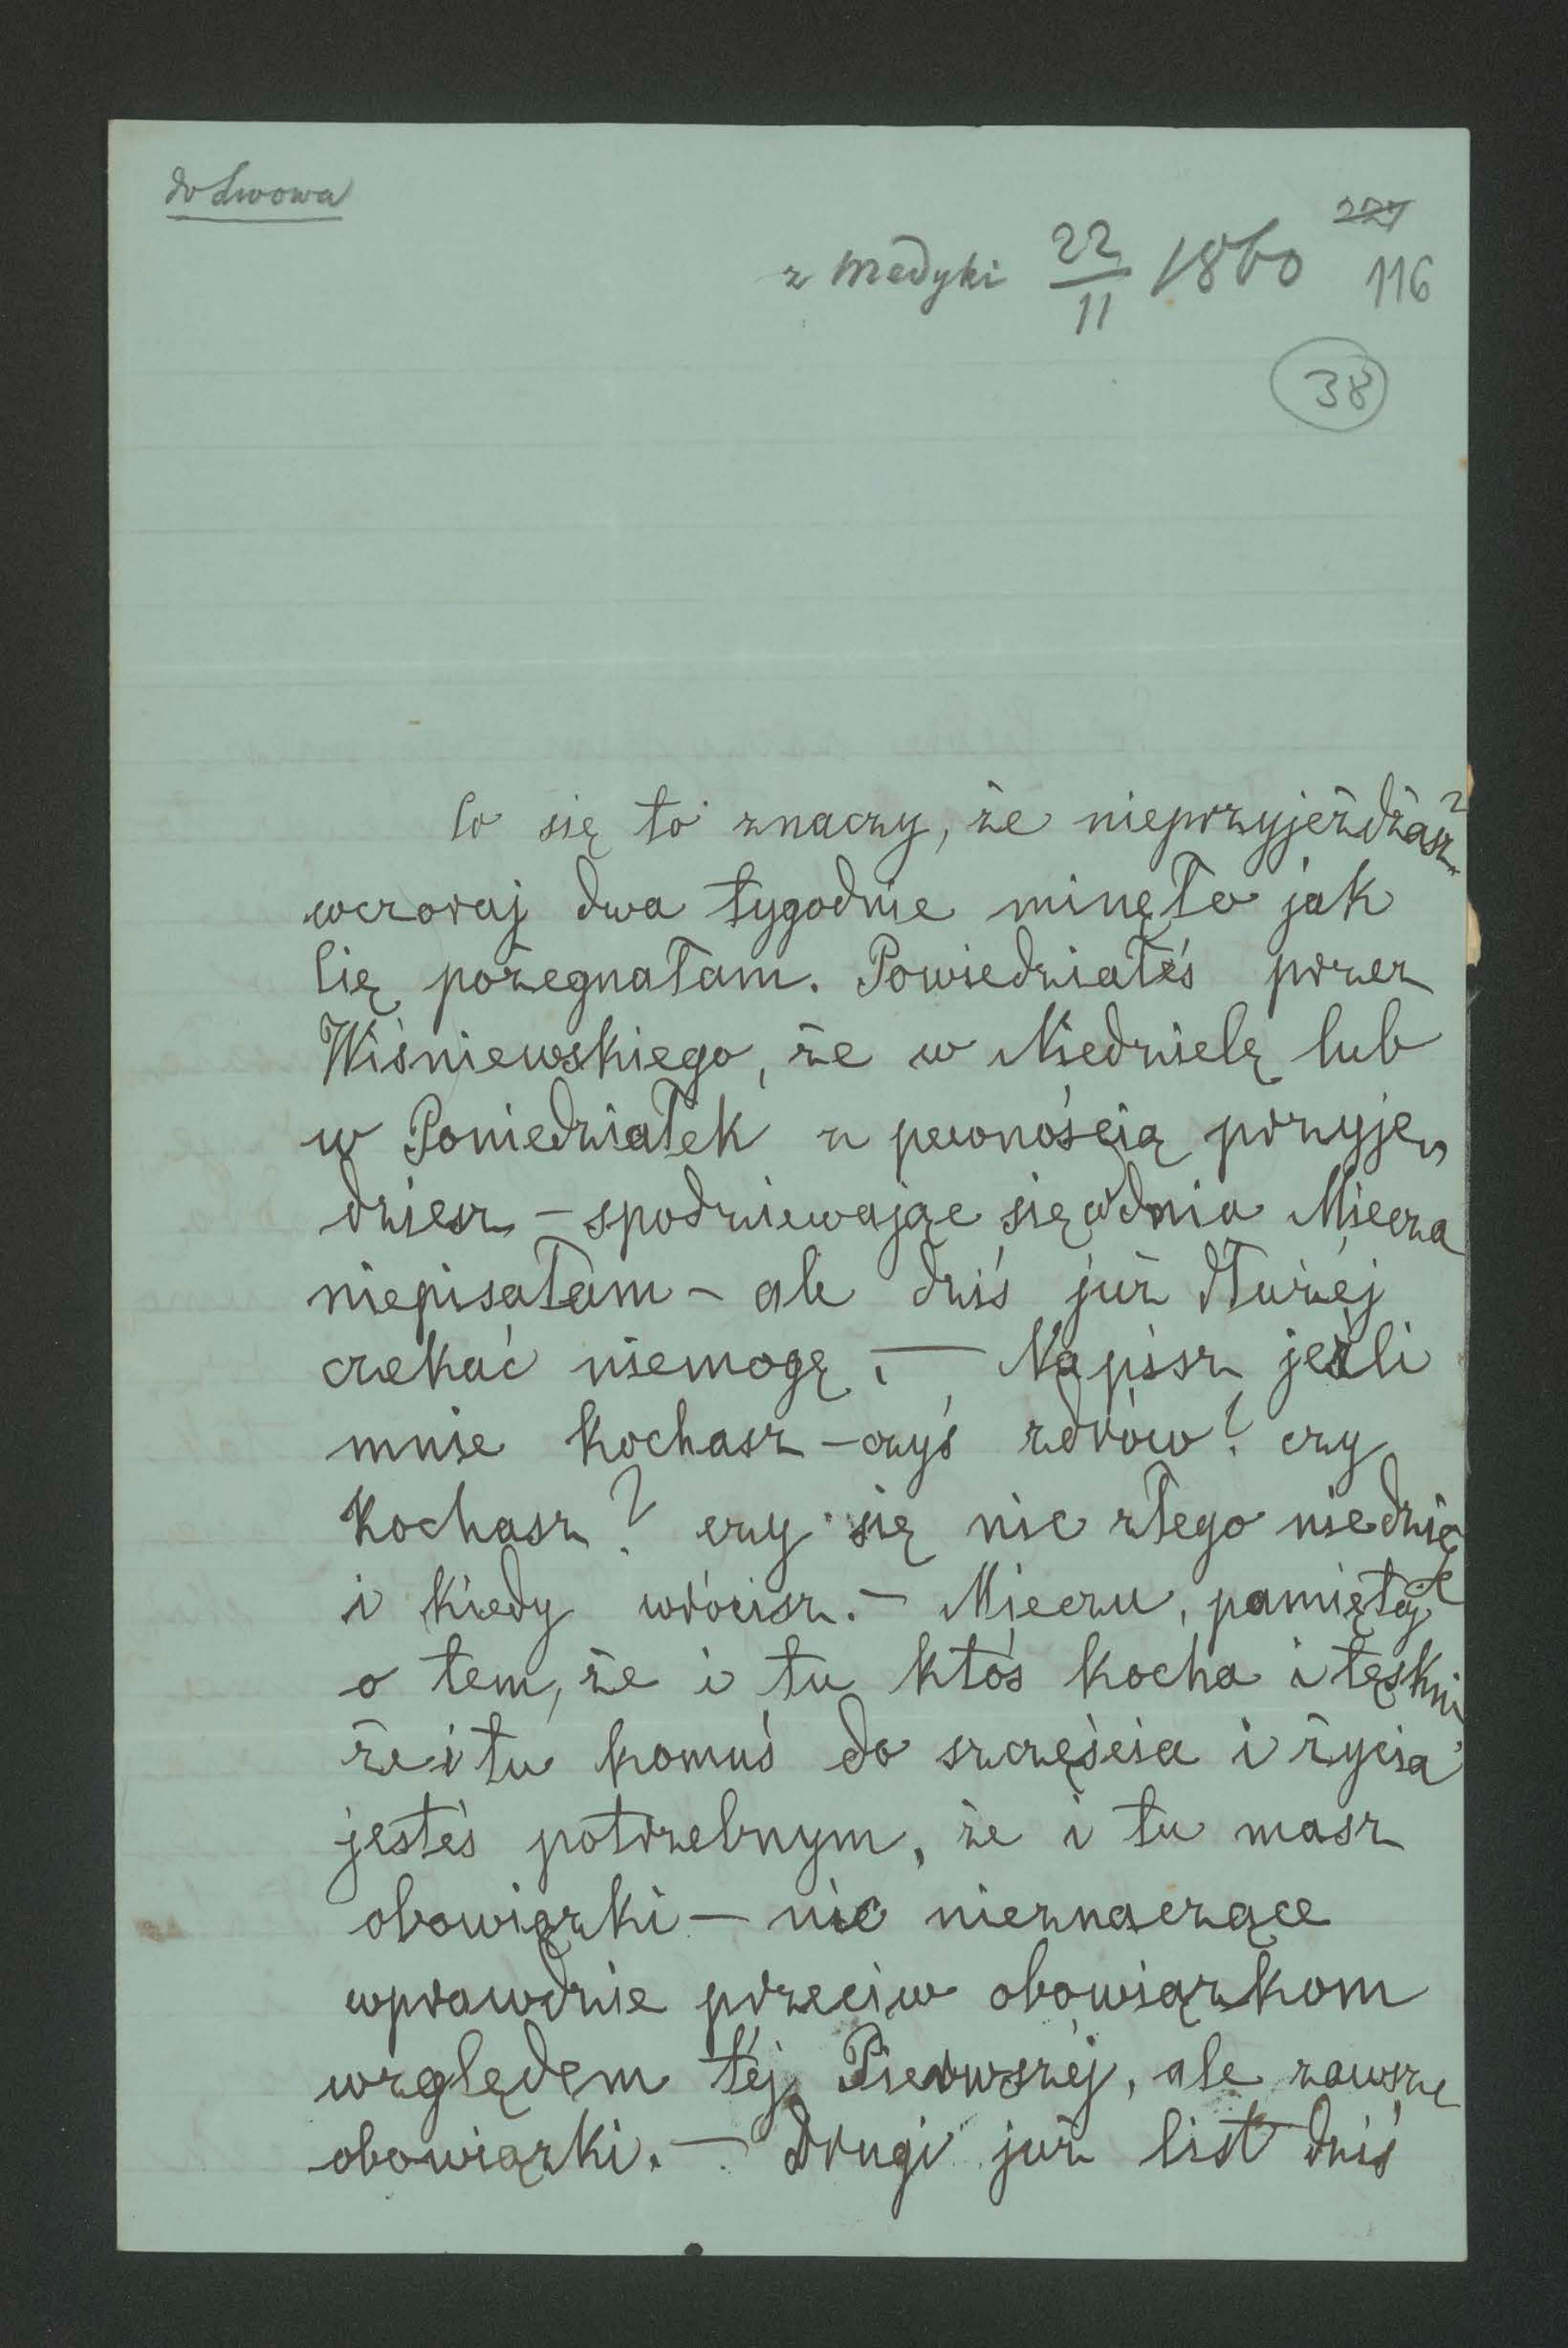 do Lwowa
227
z Medyki 22/11 1860 116
38
Co się to znaczy, że nieprzyjeżdżasz?
wczoraj dwa tygodnie minęło jak
Cię pożegnałam. Powiedziałeś przez
Wiśniewskiego, że w Niedzielę lub
w Poniedziałek z pewnością przyje„
dziesz – spodziewając się odnia Miecza
niepisałam – ale dziś już dłużéj
czekać niemogę. — Napisz jeżli
mnie kochasz – czyś zdrów? czy
kochasz? czy się nic złego niedzieje
i kiedy wrócisz. – Mieczu, pamiętaj
o tem, że i tu ktoś kocha i tęskni
że i tu komuś do szczęścia i życia
jesteś potrzebnym, że i tu masz
obowiązki — nic nieznaczące
wprawdzie przeciw obowiązkom
względem téj Pierwszéj, ale zawsze
obowiązki. — Drugi już list dziś